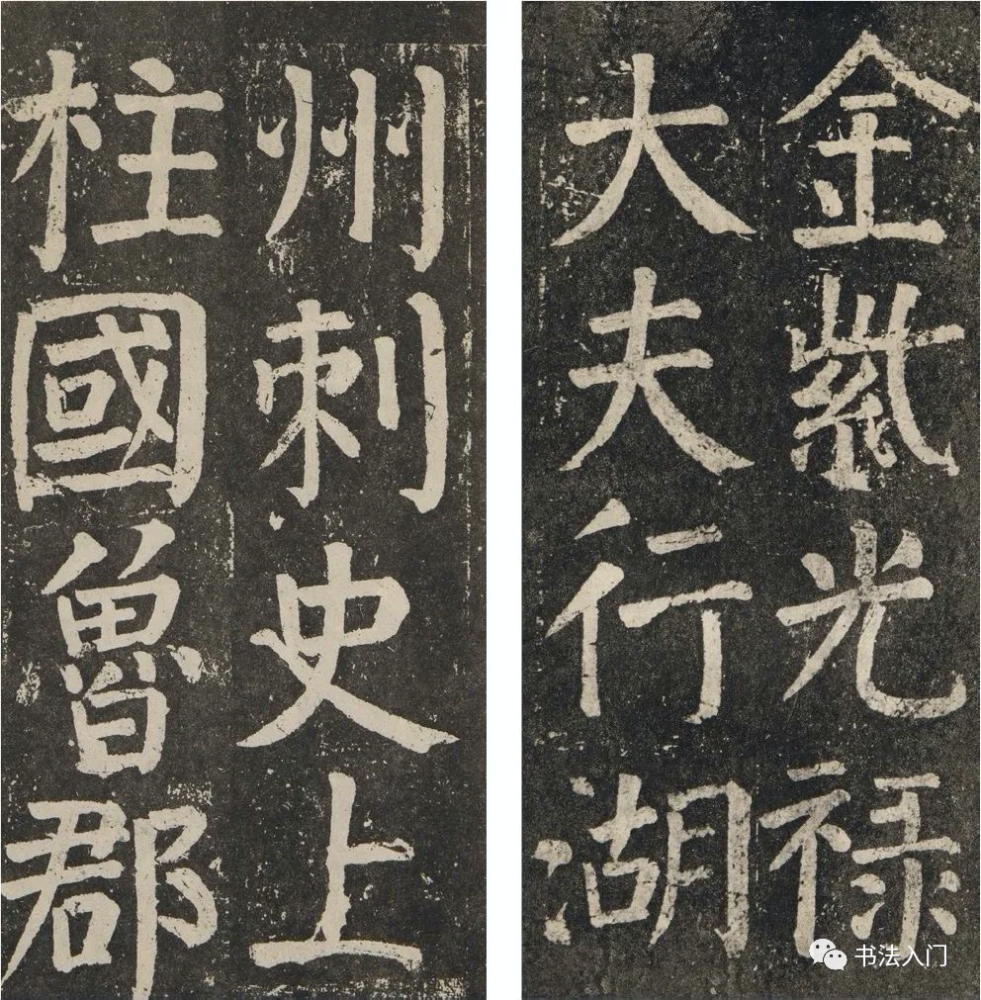 金紫光禄
大夫行湖
州刺史上
柱國魯郡
书法入门